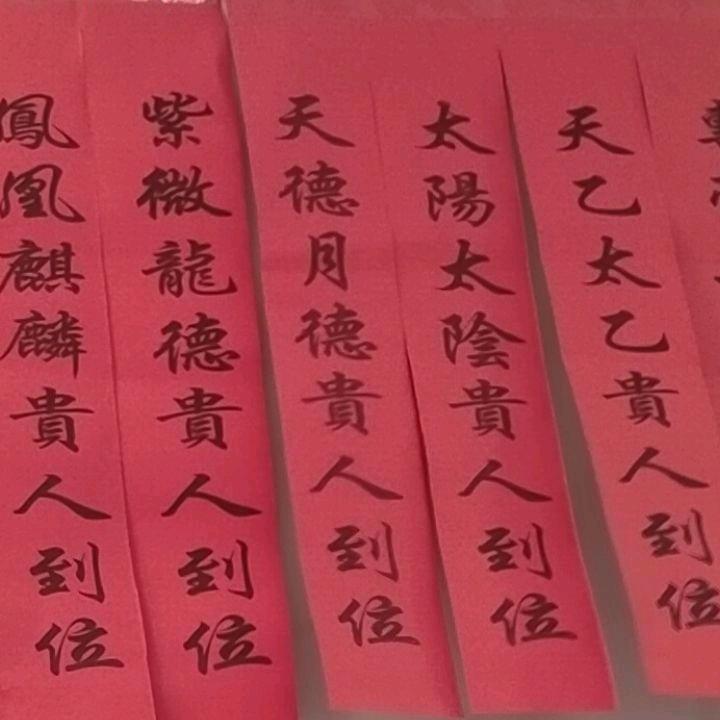 天乙太乙貴人到位
太陽太陰貴人到位
天德月德貴人到位
紫微龍德貴人到位
鳳凰麒麟貴人到位